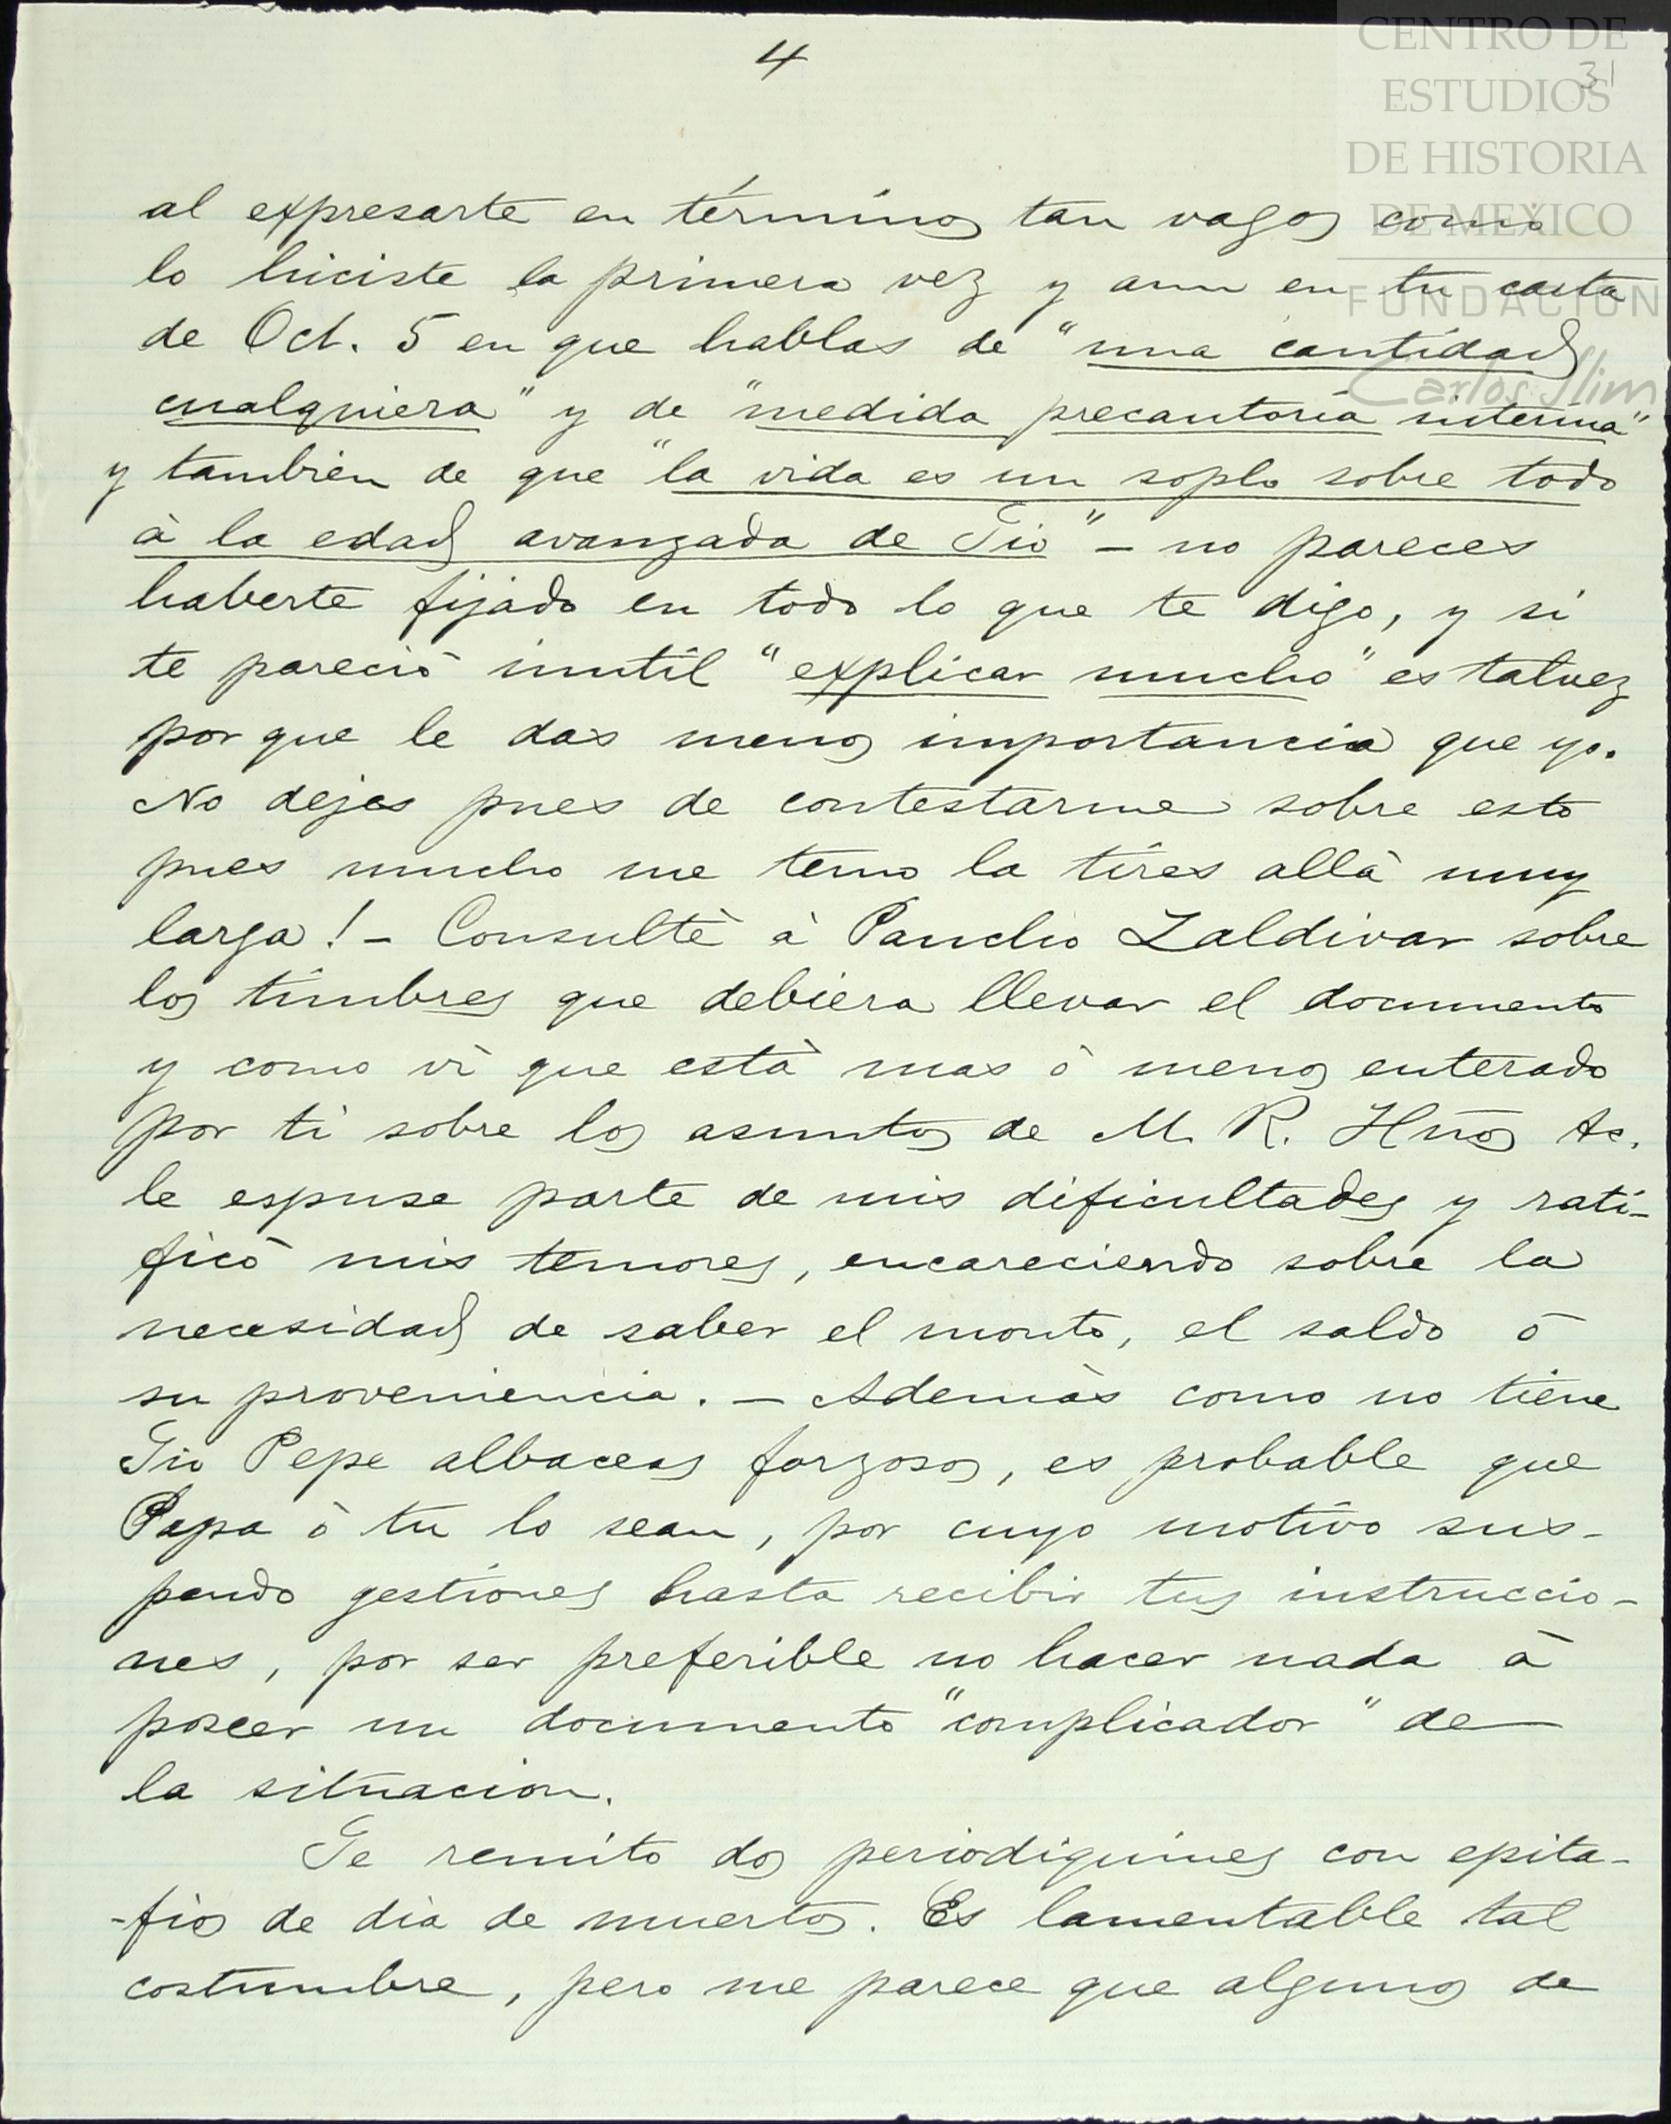 4
31
CENTRO DE
ESTUDIOS
DE HISTORIA
DE MEXICO
FUNDACIÓN
Carlos Slim
al expresarte en términos tan vagos como
lo hiciste la primera vez y aun en tu carta
de Oct. 5 en que hablas de "una cantidad
cualquiera" y de "medida precautoria interina"
y tambien de que "la vida es un soplo sobre todo
à la edad avanzada de Tio" – no pareces
haberte fijado en todo lo que te digo, y si
te pareciò inutil "explicar mucho" es talvez
por que le das menos importancia que yo.
No dejes pues de contestarme sobre esto
pues mucho me temo la tires allà muy
larga! – Consultè à Pancho Zaldivar sobre
los timbres que debiera llevar el documento
y como vì que està mas ò menos enterado
por tì sobre los asuntos de M. R. Hnos &c.
le espuse parte de mis dificultades y rati-
ficò mis temores, encareciendo sobre la
necesidad de saber el monto, el saldo ò
su proveniencia. – Ademàs como no tiene
Tio Pepe albaceas forzosos, es probable que
Papa ò tu lo sean, por cuyo motivo sus-
pendo gestiones hasta recibir tus instruccio-
nes, por ser preferible no hacer nada à
poseer un documento "complicador" de
la situacion.
Te remito dos periodiquines con epita-
-fios de dìa de muertos. Es lamentable tal
costumbre, pero me parece que algunos de